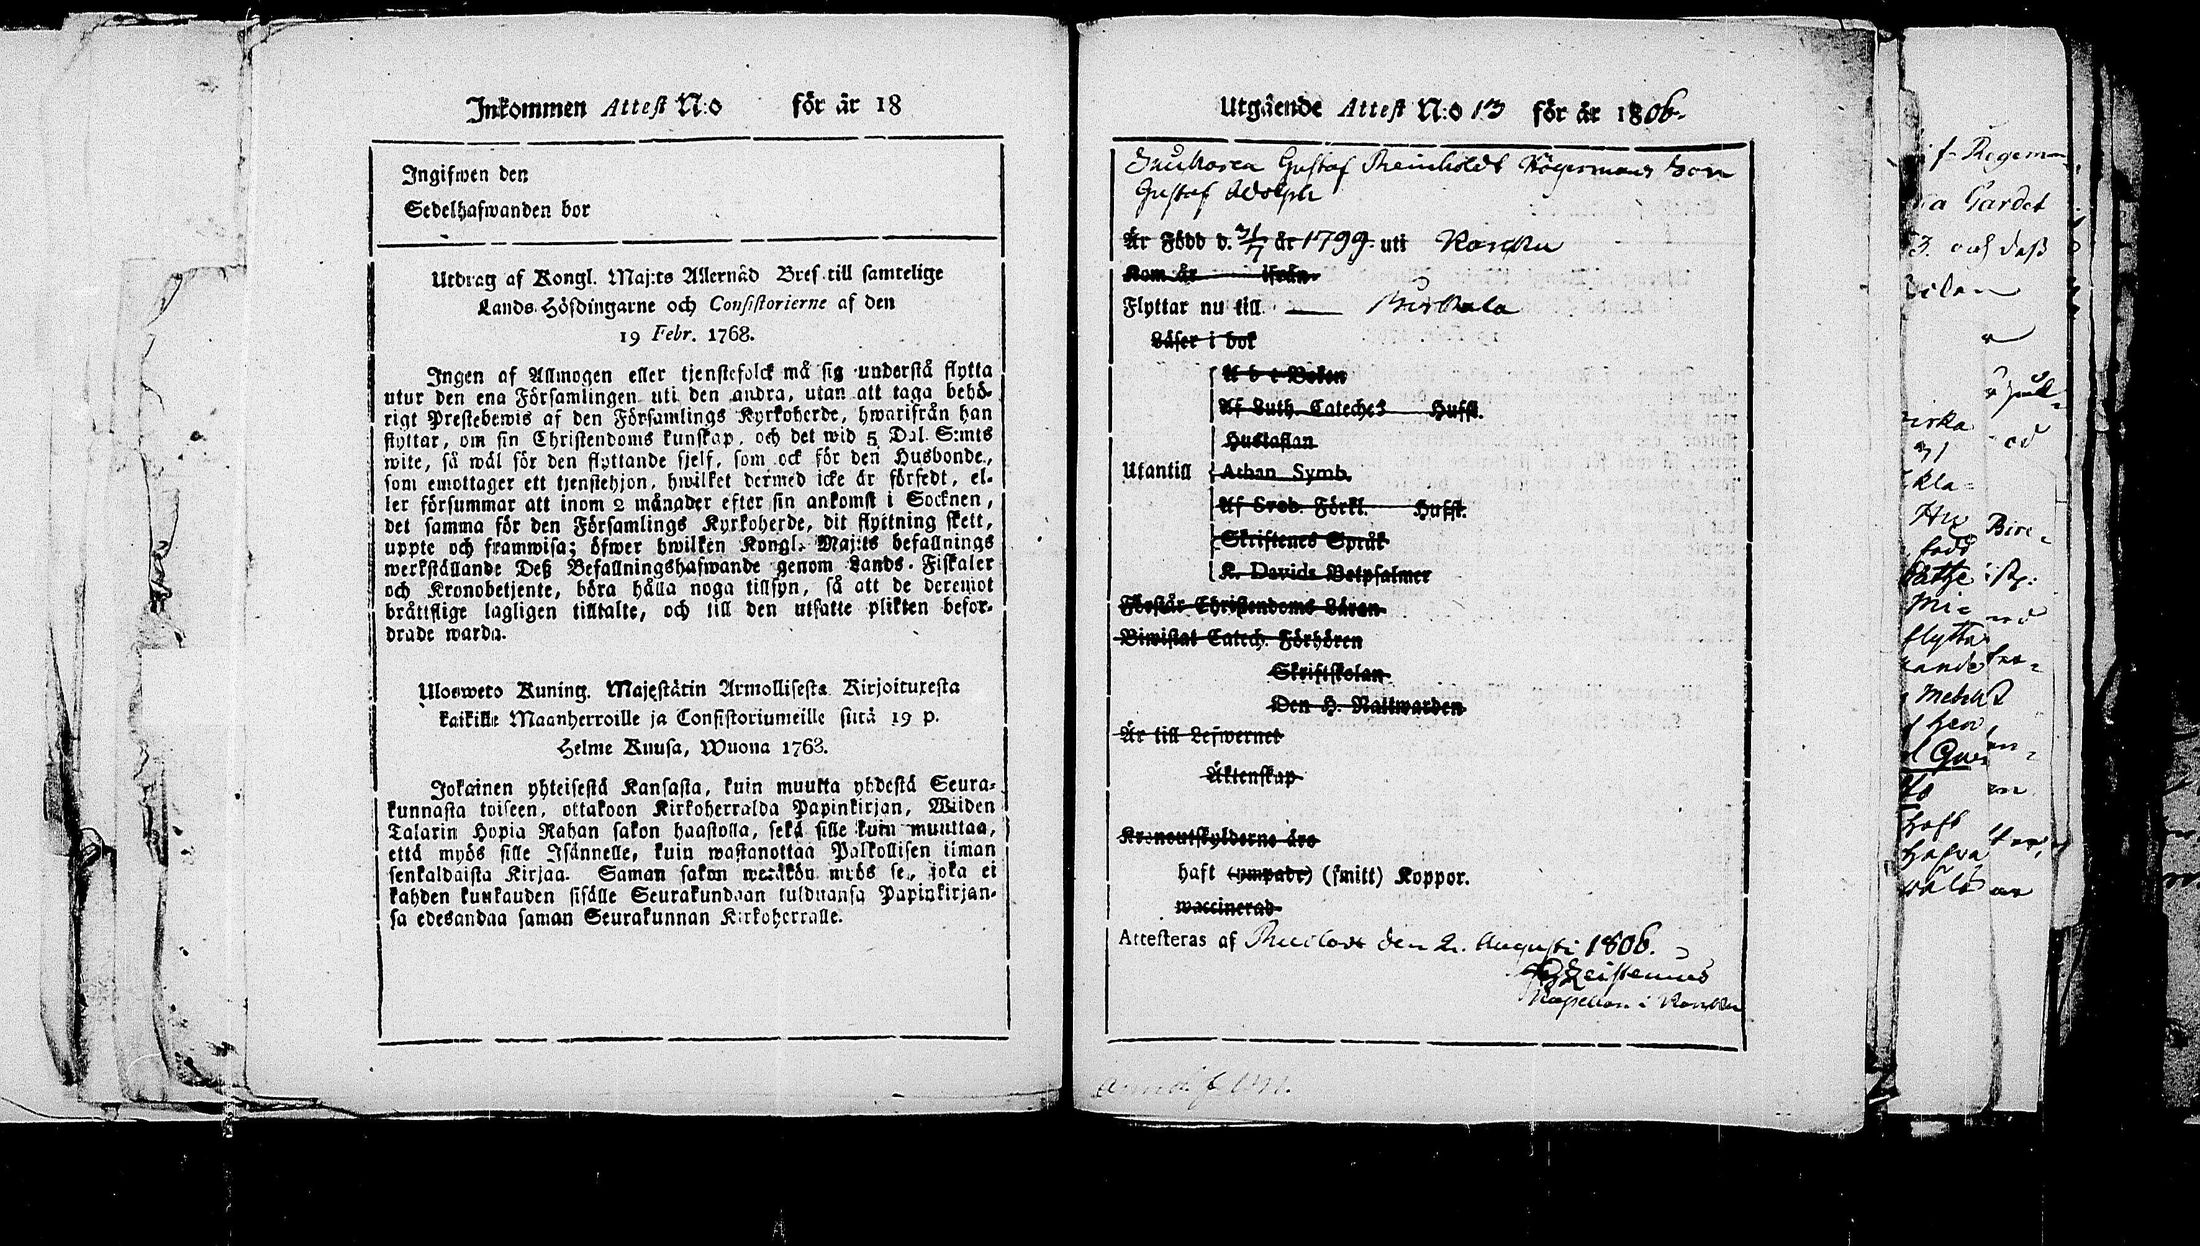 Inkommen Attest N:o för år 18
Ingifwen den
Sedelhafwanden bor
Utdrag af Kongl. Maj:ts Allernåd Bref till samtelige
Lands-Höfdingarne och Consistorierne af den
19 Febr. 1768.
Ingen af Allmogen eller tjenstefolck må sig understå flytta
utur den ena Församlingen uti den andra, utan att taga behö-
rigt Prestebewis af den Församlings Kyrkoherde, hwarifrån han
flyttar, om sin Christendoms kunskap, och det wid 5 Dal. S:mts
wite, så wäl för den flyttande sjelf, som ock för den Husbonde,
som emottager ett tjenstehjon, hwilket dermed icke är försedt, el-
ler försummar att inom 2 månader efter sin ankomst i Socknen,
det samma för den Församlings Kyrkoherde, dit flyttning skett,
uppte och framwisa; öfwer hwilken Kongl. Maj:ts befallnings
werkställande Deß Befallningshafwande genom Lands-Fiskaler
och Kronobetjente, böra hålla noga tillsyn, så att de deremot
bråttslige lagligen tilltalte, och till den utsatte plikten befor-
drade warda.
Ulosweto Kuning. Majestätin Armollisesta Kirjoituxesta
kaikille Maanherroille ja Consistoriumeille siitä 19 p.
Helme Kuusa, Wuona 1763.
Jokainen yhteisestä Kansasta, kuin muutta yhdestä Seura-
kunnasta toiseen, ottakoon Kirkoherralda Papinkirjan, Wiiden
Talarin Hopia Rahan sakon haastolla, sekä sille kuin muuttaa,
että myös sille Isännelle, kuin wastanottaa Palkollisen ilman
senkaldaista Kirjaa. Saman sakon wetäkön myös se, joka ei
kahden kuukauden sisälle Seurakundaan tulduansa Papinkirjan-
sa edesandaa saman Seurakunnan Kirkoherralle.
Utgående Attest N:o 13 för år 1806.
Gustaf Reinholdt Högermans Son
Gustaf Adolph
Är Född d. 31/7 år 1799. uti Karkku
Kom år ifrån
Flyttar nu till Birkala
Läser i bok
A b c Boken
Af Luth. Cateches Hufst.
Hustaflan
Utantill Athan Symb.
Af Sveb. Förkl. Hufst.
Skriftenes Språk
K. Davids Botpsalmer
Förstår Christendoms Läran
Biwistat Catech. Förhören
Skriftskolan
Den H. Nattwarden
Är till Lefwernet
Äktenskap
Kronoutskylderne äro
haft (ympade) (smitt) Koppor.
waccinerad
Attesteras af den 2. Augusti 1806.
Kapellan i Karkku